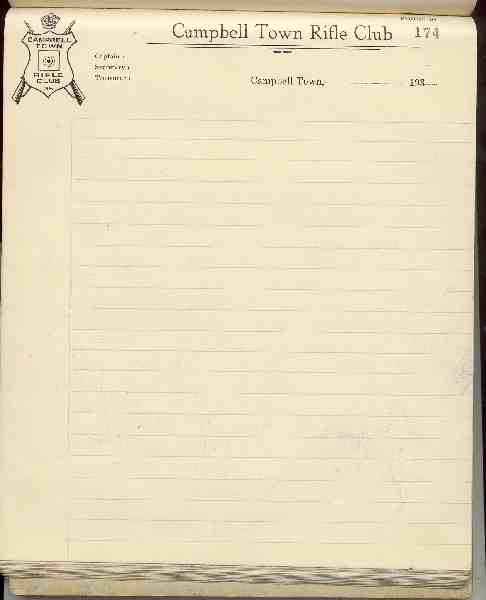 CAMPBELL
TOWN
RIFLE
CLUB
Campbell Town Rifle Club
174
Captain :
Secretary :
Treasurer :
Campbell Town, 193